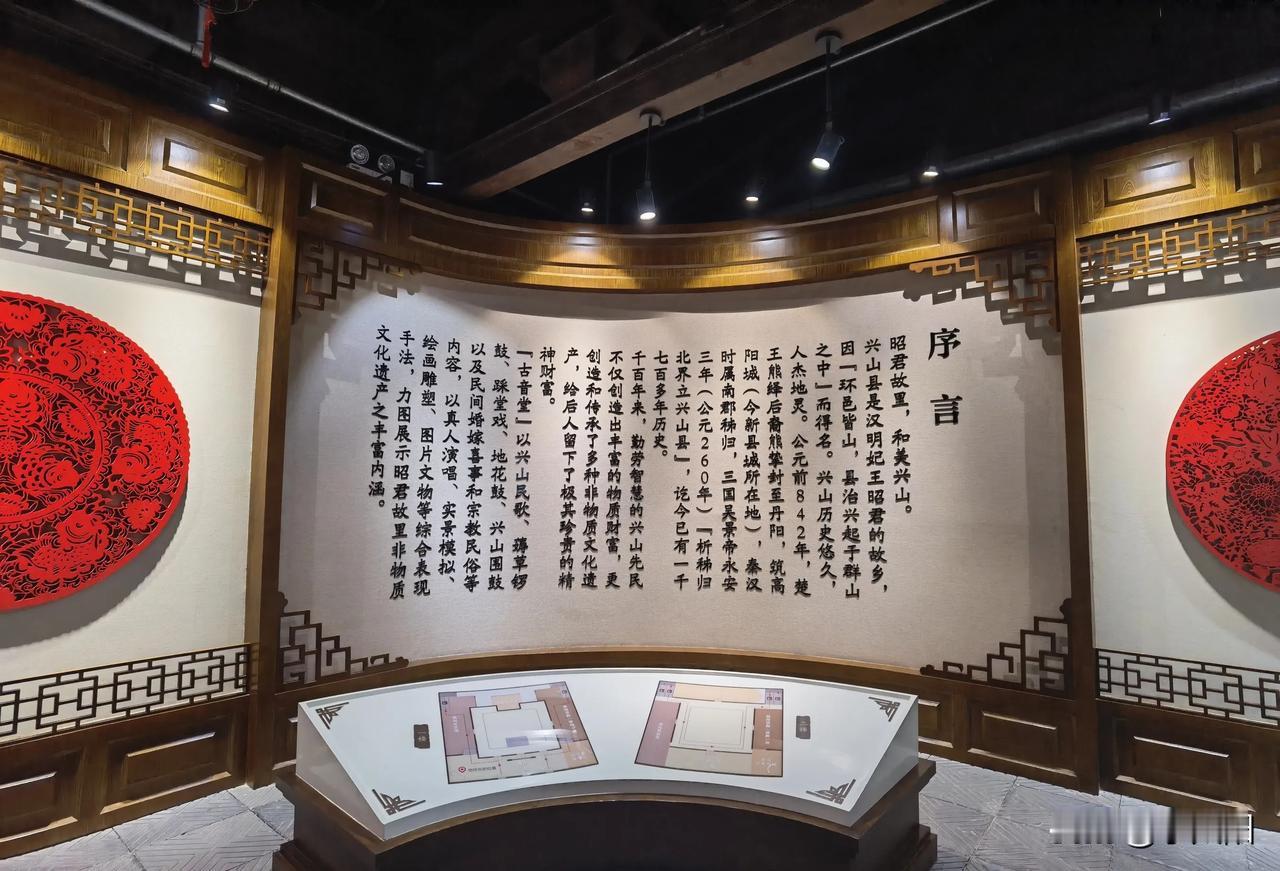 序言
昭君故里，和美兴山。
兴山县是汉明妃王昭君的故乡，
因『环邑皆山，县治兴起于群山
之中』而得名。兴山历史悠久，
人杰地灵。公元前842年，楚
王熊绎后裔熊挚封至丹阳，筑高
阳城（今新县城所在地），秦汉
时属南郡秭归，三国吴景帝永安
三年（公元260年）『析秭归
北界立兴山县』，讫今已有一千
七百多年历史。
千百年来，勤劳智慧的兴山先民
不仅创造出丰富的物质财富，更
创造和传承了多种非物质文化遗
产，给后人留下了极其珍贵的精
神财富。
『古音堂』以兴山民歌、薅草锣
鼓、踩堂戏、地花鼓、兴山围鼓
以及民间婚嫁喜事和宗教民俗等
内容，以真人演唱、实景模拟、
绘画雕塑、图片文物等综合表现
手法，力图展示昭君故里非物质
文化遗产之丰富内涵。
一楼
二楼